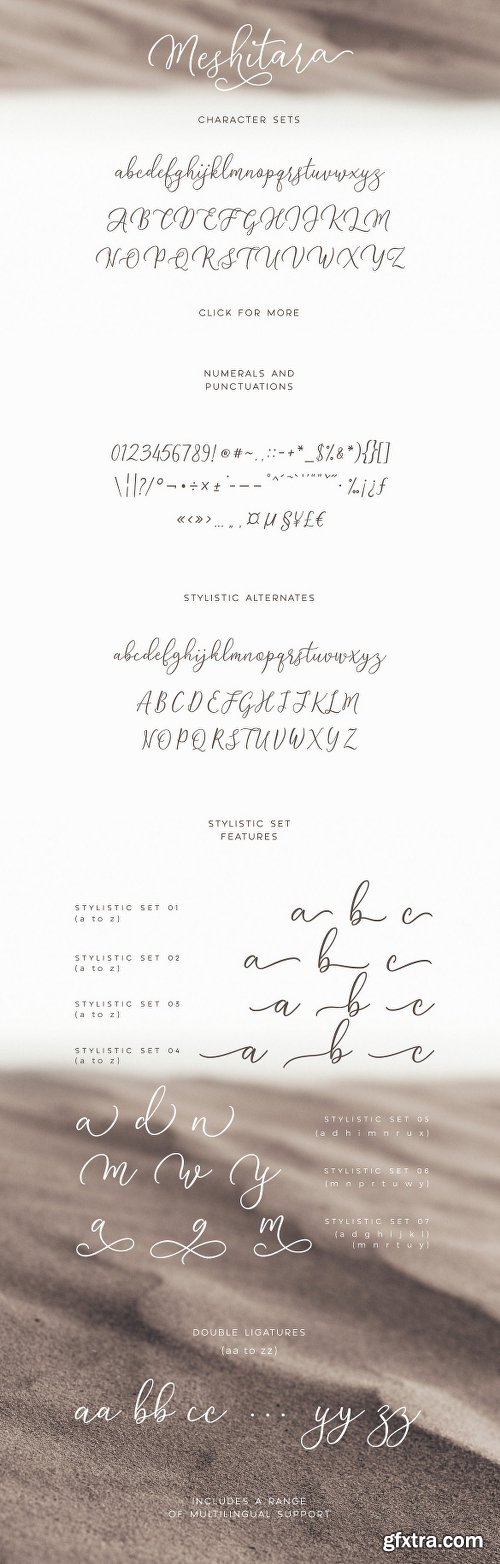 Meshitara
CHARACTER SETS
abcdefghijklmnopqrstuvwxyz
ABCDEFGHIJKLM
NOPQRSTUVWXYZ
CLICK FOR MORE
NUMERALS AND
PUNCTUATIONS
0123456789! ®#~.,:;-+*_$%&*){}[]
\¦|?/°¬•÷×±
·‰¡¿ƒ
«‹»›…„‚¤µ§¥£€
STYLISTIC ALTERNATES
abcdefghijklmnopqrstuvwxyz
ABCDEFGHIJKLM
NOPQRSTUVWXYZ
STYLISTIC SET
FEATURES
STYLISTIC SET 01
(a to z)
a b c
STYLISTIC SET 02
(a to z)
a b c
STYLISTIC SET 03
(a to z)
a b c
STYLISTIC SET 04
(a to z)
a b c
a d n
STYLISTIC SET 05
(a d h i m n r u x)
m w y
STYLISTIC SET 06
(m n p r t u w y)
a g m
STYLISTIC SET 07
(a d g h i j k l)
(m n r t u y)
DOUBLE LIGATURES
(aa to zz)
aa bb cc ... yy zz
INCLUDES A RANGE
OF MULTILINGUAL SUPPORT
gfxtra.com